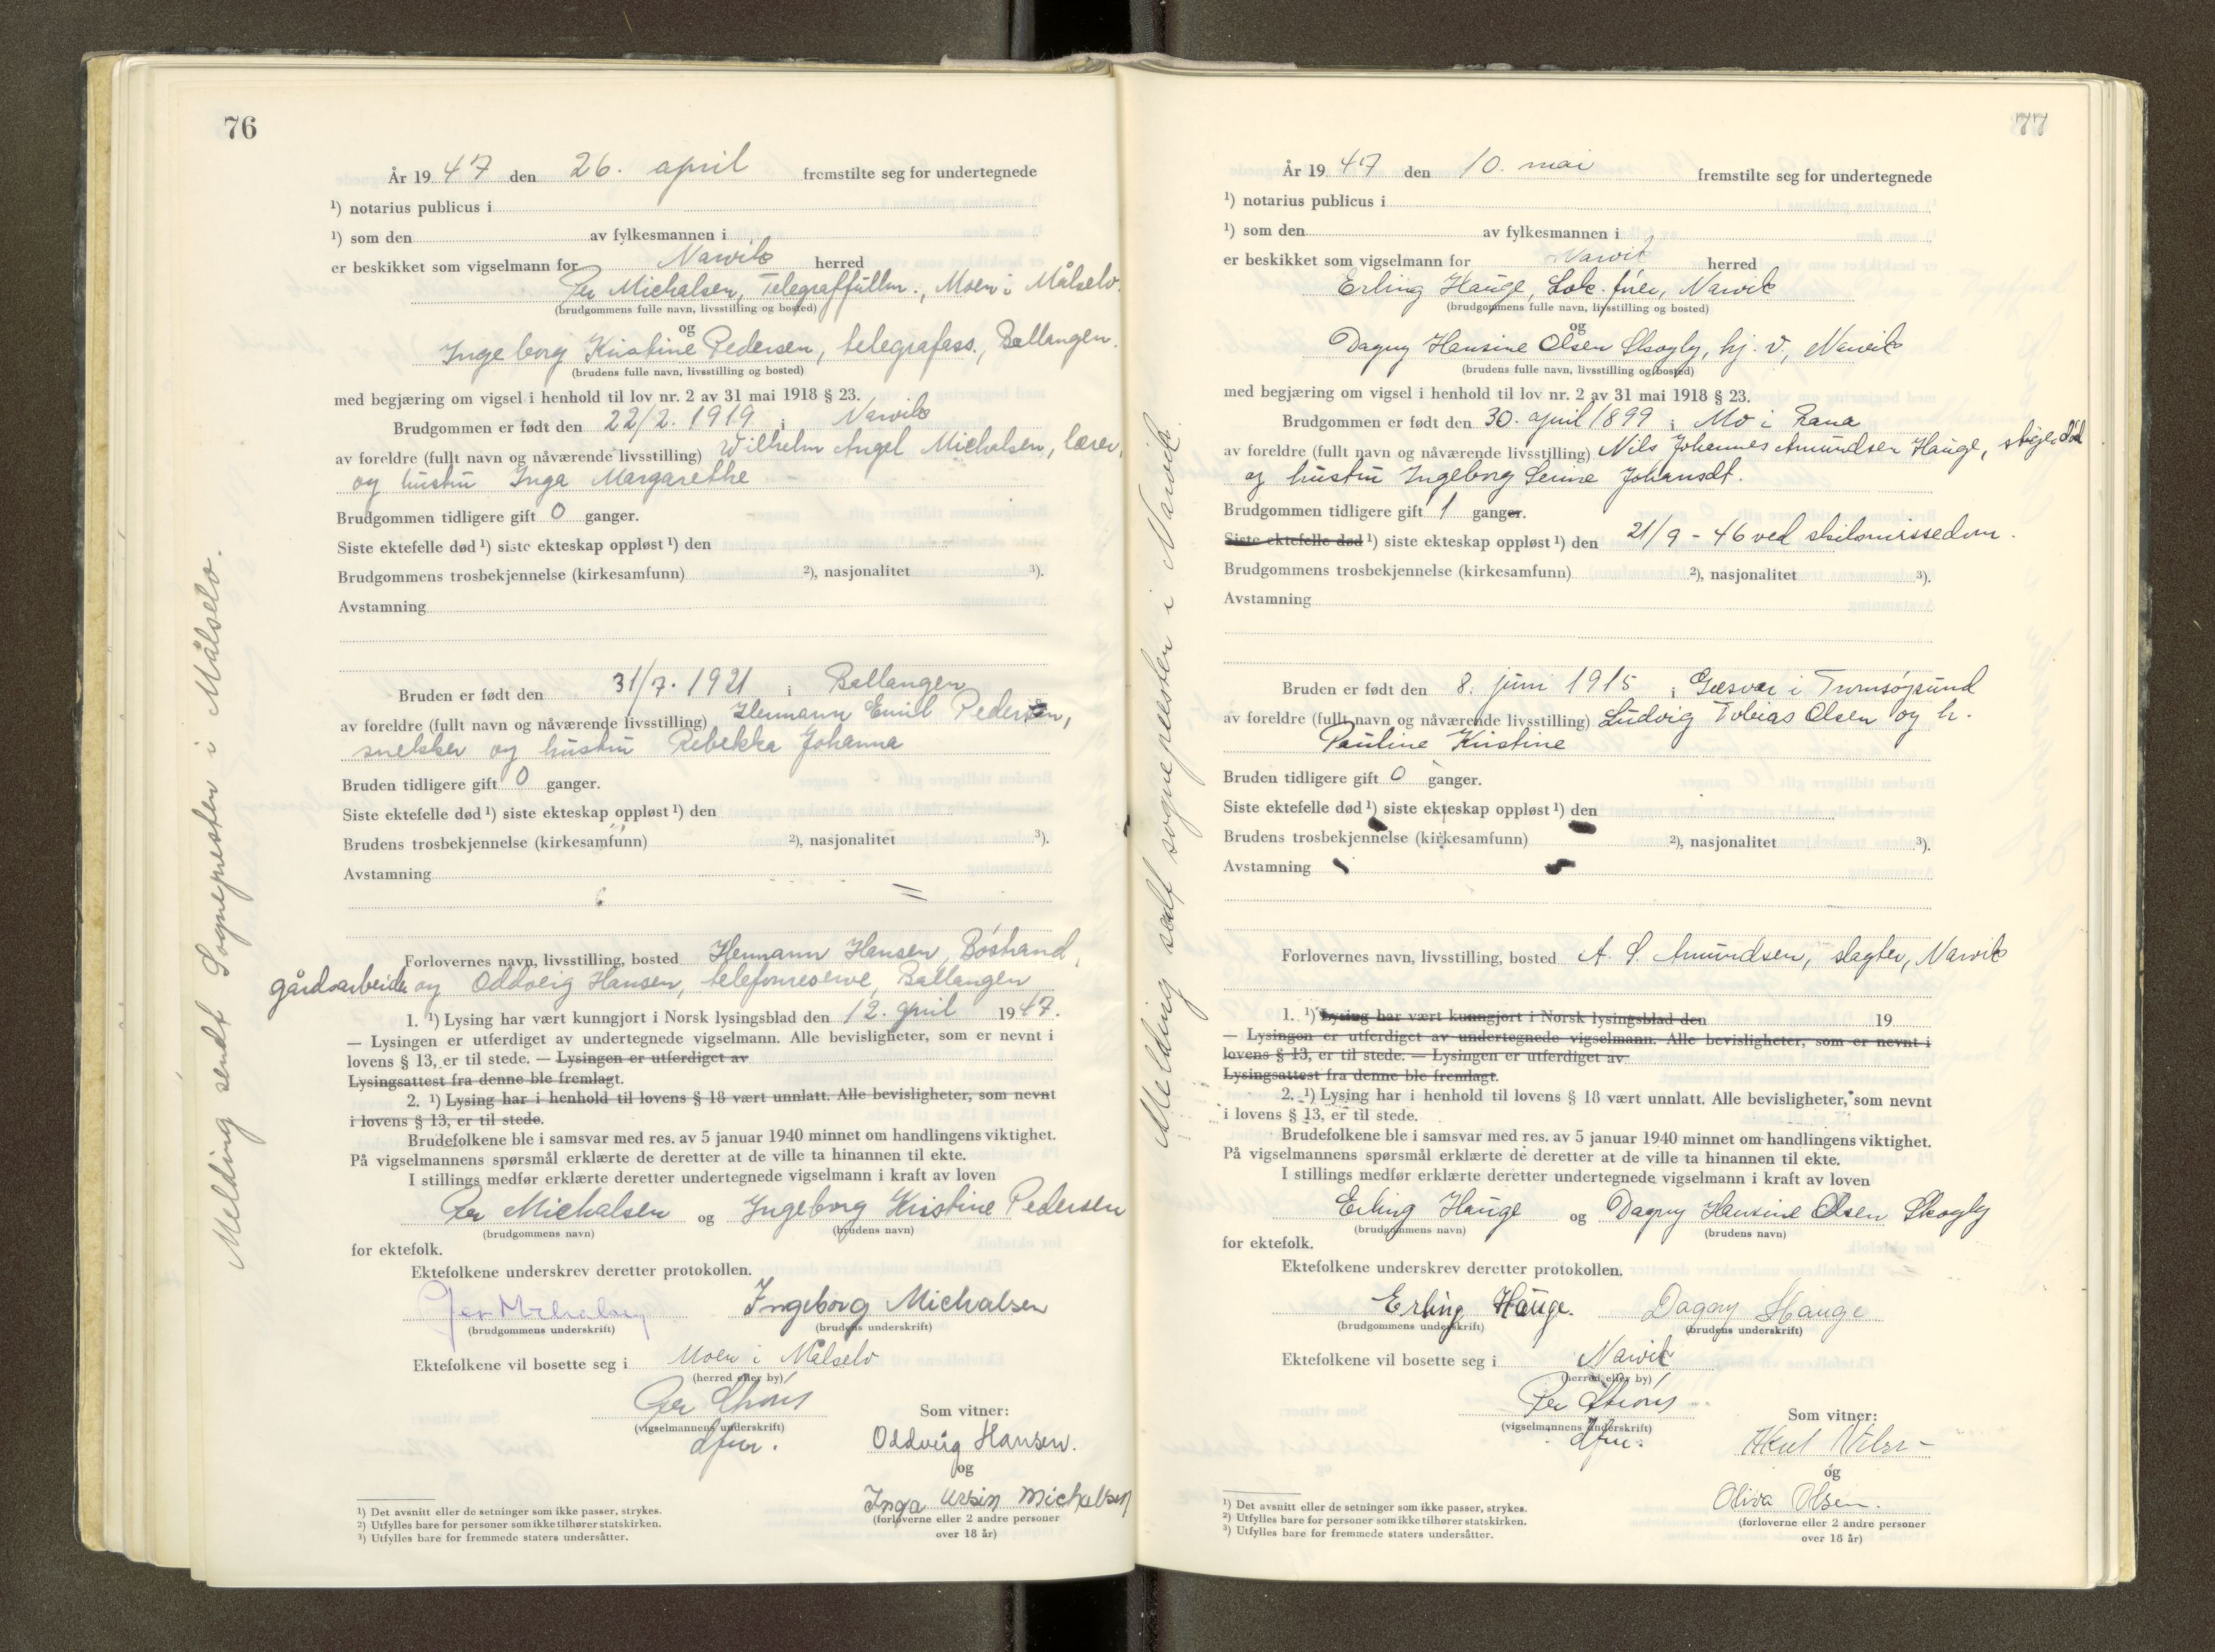 76
År 19 47 den 26. april fremstilte seg for undertegnede
¹) notarius publicus i
¹) som den av fylkesmannen i
er beskikket som vigselmann for Narvik herred
Per Michalsen, Telegraffullm., Moen i Målselv.
(brudgommens fulle navn, livsstilling og bosted)
og
Ingeborg Kristine Pedersen, telegrafass., Ballangen.
(brudens fulle navn, livsstilling og bosted)
med begjæring om vigsel i henhold til lov nr. 2 av 31 mai 1918 § 23.
Brudgommen er født den 22/2. 1919 i Narvik
av foreldre (fullt navn og nåværende livsstilling) Wilhelm Angel Michalsen, lærer,
og hustru Inga Margarethe
Brudgommen tidligere gift 0 ganger.
Siste ektefelle død ¹) siste ekteskap oppløst ¹) den
Brudgommens trosbekjennelse (kirkesamfunn) ²), nasjonalitet ³).
Avstamning
Bruden er født den 31/7. 1921 i Ballangen
av foreldre (fullt navn og nåværende livsstilling) Hermann Emil Pedersen,
snekker og hustru Rebekka Johanna
Bruden tidligere gift 0 ganger.
Siste ektefelle død ¹) siste ekteskap oppløst ¹) den
Brudens trosbekjennelse (kirkesamfunn) ²), nasjonalitet ³).
Avstamning
Forlovernes navn, livsstilling, bosted Hermann Hansen, Bøstrand,
gårdsarbeider og Oddveig Hansen, telefonreserve, Ballangen
1. ¹) Lysing har vært kunngjort i Norsk lysingsblad den 12. april 1947.
— Lysingen er utferdiget av undertegnede vigselmann. Alle bevisligheter, som er nevnt i
lovens § 13, er til stede. — Lysingen er utferdiget av
Lysingsattest fra denne ble fremlagt.
2. ¹) Lysing har i henhold til lovens § 18 vært unnlatt. Alle bevisligheter, som nevnt
i lovens § 13, er til stede.
Brudefolkene ble i samsvar med res. av 5 januar 1940 minnet om handlingens viktighet.
På vigselmannens spørsmål erklærte de deretter at de ville ta hinannen til ekte.
I stillings medfør erklærte deretter undertegnede vigselmann i kraft av loven
Per Michalsen og Ingeborg Kristine Pedersen
(brudgommens navn) (brudens navn)
for ektefolk.
Ektefolkene underskrev deretter protokollen.
Per Michalsen Ingeborg Michalsen
(brudgommens underskrift) (brudens underskrift)
Ektefolkene vil bosette seg i Moen i Målselv
(herred eller by)
Per
(vigselmannens underskrift)
dfm.
Som vitner:
Oddveig Hansen.
og
Inga Ursin Michalsen
(forloverne eller 2 andre personer
over 18 år)
¹) Det avsnitt eller de setninger som ikke passer, strykes.
²) Utfylles bare for personer som ikke tilhører statskirken.
³) Utfylles bare for fremmede staters undersåtter.
Melding sendt Sognepresten i Målselv.
77
År 19 47 den 10. mai fremstilte seg for undertegnede
¹) notarius publicus i
¹) som den av fylkesmannen i
er beskikket som vigselmann for Narvik herred
Erling Hauge, Lok. fører, Narvik
(brudgommens fulle navn, livsstilling og bosted)
og
Dagny Hansine Olsen Skogly, hj. v, Narvik
(brudens fulle navn, livsstilling og bosted)
med begjæring om vigsel i henhold til lov nr. 2 av 31 mai 1918 § 23.
Brudgommen er født den 30. april 1899 i Mo i Rana
av foreldre (fullt navn og nåværende livsstilling) Nils Johannes Amundsen Hauge, stiger død
og hustru Ingeborg Johansdt.
Brudgommen tidligere gift 1 ganger.
Siste ektefelle død ¹) siste ekteskap oppløst ¹) den 21/9 - 46 ved skilsmissedom.
Brudgommens trosbekjennelse (kirkesamfunn) ²), nasjonalitet ³).
Avstamning
Bruden er født den 8. juni 1915 i Gåsvær i Tromsøysund
av foreldre (fullt navn og nåværende livsstilling) Ludvig Tobias Olsen og h.
Pauline Kristine
Bruden tidligere gift 0 ganger.
Siste ektefelle død ¹) siste ekteskap oppløst ¹) den
Brudens trosbekjennelse (kirkesamfunn) ²), nasjonalitet ³).
Avstamning
Forlovernes navn, livsstilling, bosted A. S. Amundsen, slagter, Narvik
1. ¹) Lysing har vært kunngjort i Norsk lysingsblad den 19
— Lysingen er utferdiget av undertegnede vigselmann. Alle bevisligheter, som er nevnt i
lovens § 13, er til stede. — Lysingen er utferdiget av
Lysingsattest fra denne ble fremlagt.
2. ¹) Lysing har i henhold til lovens § 18 vært unnlatt. Alle bevisligheter, som nevnt
i lovens § 13, er til stede.
Brudefolkene ble i samsvar med res. av 5 januar 1940 minnet om handlingens viktighet.
På vigselmannens spørsmål erklærte de deretter at de ville ta hinannen til ekte.
I stillings medfør erklærte deretter undertegnede vigselmann i kraft av loven
Erling Hauge og Dagny Hansine Olsen Skogly
(brudgommens navn) (brudens navn)
for ektefolk.
Ektefolkene underskrev deretter protokollen.
Erling Hauge. Dagny Hauge
(brudgommens underskrift) (brudens underskrift)
Ektefolkene vil bosette seg i Narvik
(herred eller by)
Per
(vigselmannens underskrift)
dfm.
Som vitner:
og
Oliva Olsen.
(forloverne eller 2 andre personer
over 18 år)
¹) Det avsnitt eller de setninger som ikke passer, strykes.
²) Utfylles bare for personer som ikke tilhører statskirken.
³) Utfylles bare for fremmede staters undersåtter.
Melding sendt sognepresten i Narvik.